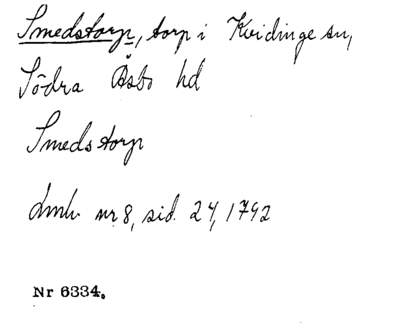 Smedstorp, torp i Kvidinge sn,
Södra Åsbo hd
Smedstorp
Lmh nr 8, sid. 24, 1792
Nr 6334.